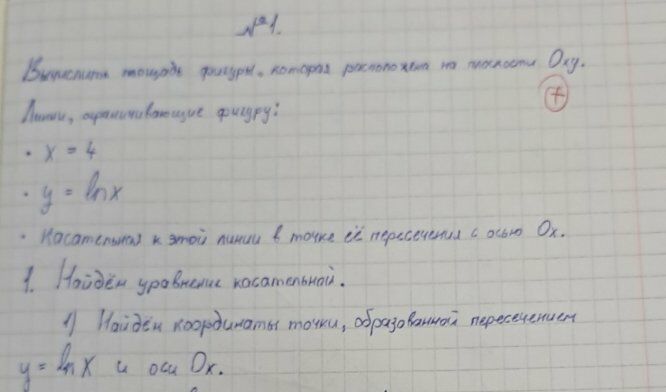 №1.
Вычислить площадь фигуры, которая расположена на плоскости Oxy.
+
Линии, ограничивающие фигуру:
• x = 4
• y = ln x
• касательная к этой линии в точке её пересечения с осью Ox.
1. Найдём уравнение касательной.
1) Найдём координаты точки, образованной пересечением
y = ln x и оси Ox.